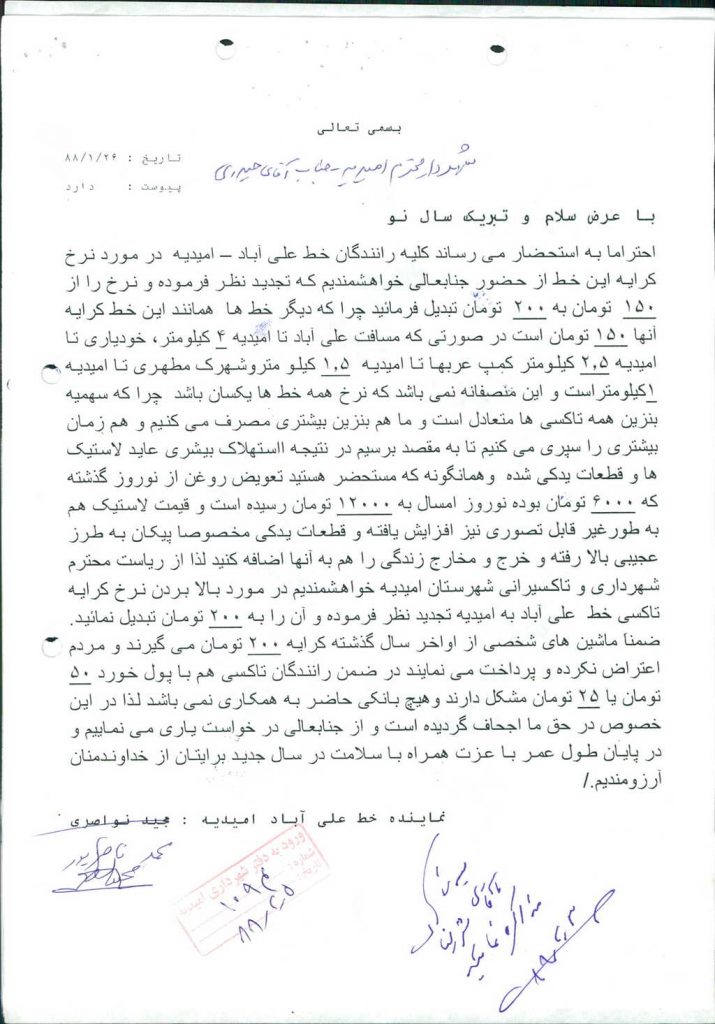 بسمی تعالی
تاریخ : ۸۸/۱/۲۶
شهردار محترم امیدیه - جناب آقای حیدری
پیوست : دارد
با عرض سلام و تبریک سال نو
احتراما به استحضار می رساند کلیه رانندگان خط علی آباد – امیدیه در مورد نرخ
کرایه این خط از حضور جنابعالی خواهشمندیم که تجدید نظر فرموده و نرخ را از
۱۵۰ تومان به ۲۰۰ تومان تبدیل فرمائید چرا که دیگر خط ها همانند این خط کرایه
آنها ۱۵۰ تومان است در صورتی که مسافت علی آباد تا امیدیه ۴ کیلومتر، خودیاری تا
امیدیه ۲,۵ کیلومتر کمپ عربها تا امیدیه ۱,۵ کیلو متروشهرک مطهری تا امیدیه
۱کیلومتراست و این منصفانه نمی باشد که نرخ همه خط ها یکسان باشد چرا که سهمیه
بنزین همه تاکسی ها متعادل است و ما هم بنزین بیشتری مصرف می کنیم و هم زمان
بیشتری را سپری می کنیم تا به مقصد برسیم در نتیجه ااستهلاک بیشری عاید لاستیک
ها و قطعات یدکی شده وهمانگونه که مستحضر هستید تعویض روغن از نوروز گذشته
که ۶۰۰۰ تومان بوده نوروز امسال به ۱۲۰۰۰ تومان رسیده است و قیمت لاستیک هم
به طورغیر قابل تصوری نیز افزایش یافته و قطعات یدکی مخصوصا پیکان به طرز
عجیبی بالا رفته و خرج و مخارج زندگی را هم به آنها اضافه کنید لذا از ریاست محترم
شهرداری و تاکسیرانی شهرستان امیدیه خواهشمندیم در مورد بالا بردن نرخ کرایه
تاکسی خط علی آباد به امیدیه تجدید نظر فرموده و آن را به ۲۰۰ تومان تبدیل نمائید.
ضمنا ماشین های شخصی از اواخر سال گذشته کرایه ۲۰۰ تومان می گیرند و مردم
اعتراض نکرده و پرداخت می نمایند در ضمن رانندگان تاکسی هم با پول خورد ۵۰
تومان یا ۲۵ تومان مشکل دارند وهیچ بانکی حاضر به همکاری نمی باشد لذا در این
خصوص در حق ما اجحاف گردیده است و از جنابعالی در خواست یاری می نماییم و
در پایان طول عمر با عزت همراه با سلامت در سال جدید برایتان از خداوندمنان
آرزومندیم./
نماینده خط علی آباد امیدیه : مجید نواصری
محمد ناصرپور
ورود به دفتر شهرداری امیدیه
شماره:
تاریخ: